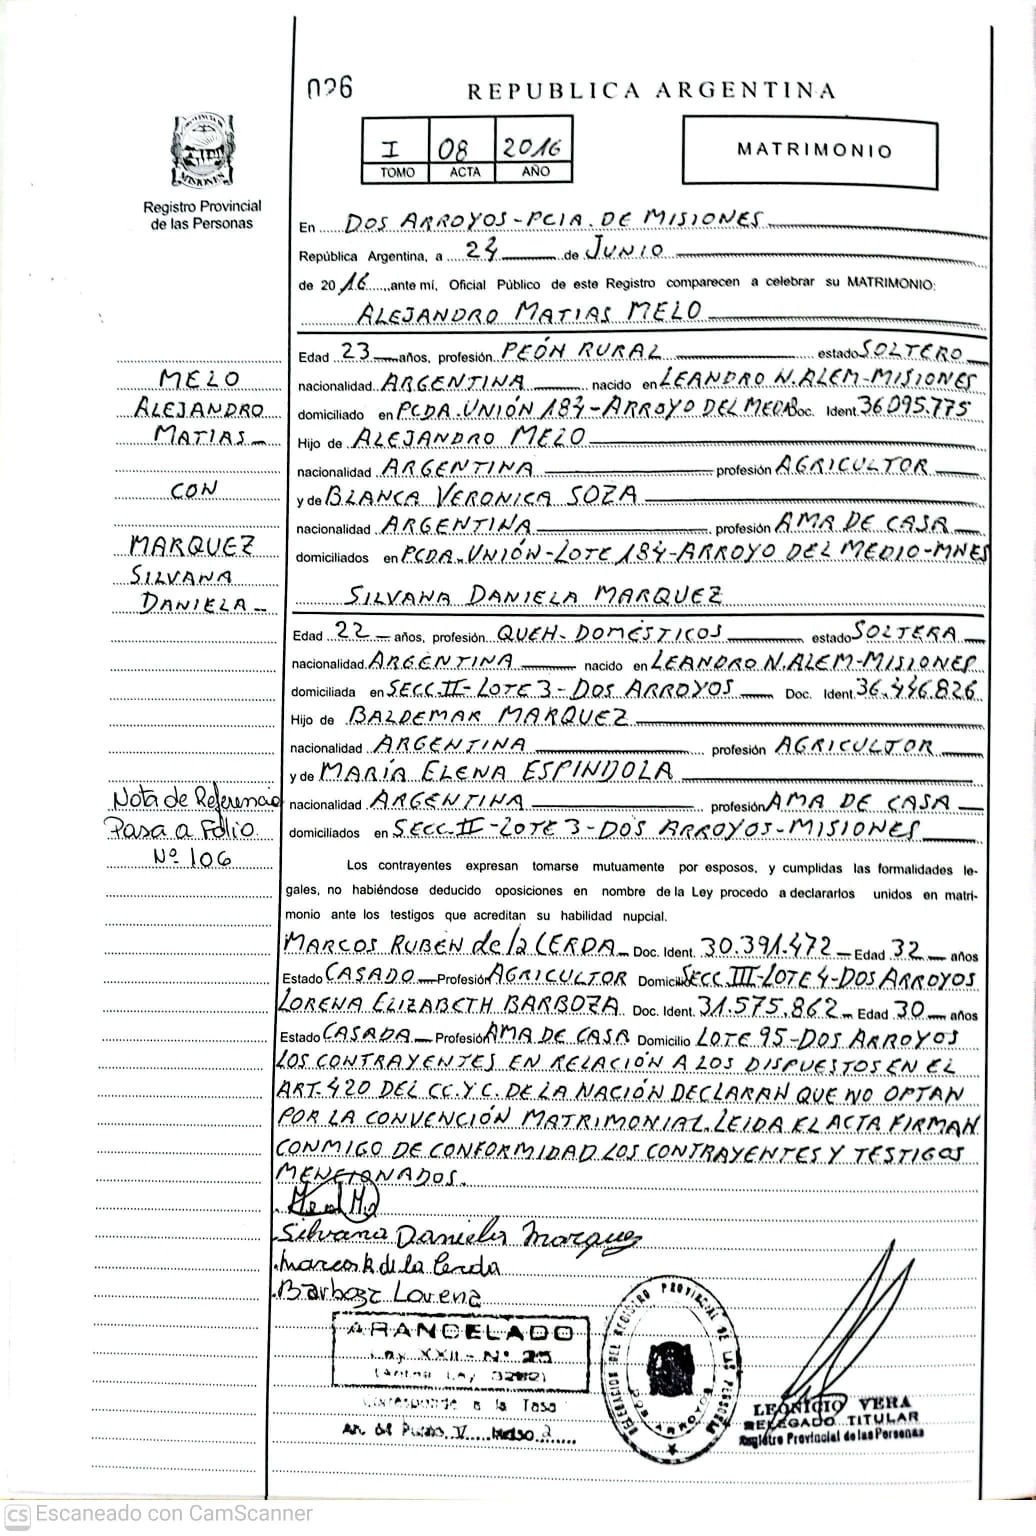 026
REPUBLICA ARGENTINA
I 08 2016
TOMO ACTA AÑO
MATRIMONIO
MISIONES
Registro Provincial
de las Personas
En DOS ARROYOS-PCIA. DE MISIONES
República Argentina, a 24 de JUNIO
de 2016, ante mí, Oficial Público de este Registro comparecen a celebrar su MATRIMONIO:
ALEJANDRO MATIAS MELO
Edad 23 años, profesión PEÓN RURAL estado SOLTERO
nacionalidad ARGENTINA nacido en LEANDRO N. ALEM-MISIONES
domiciliado en PCDA. UNIÓN 184-ARROYO DEL MEDIO Doc. Ident. 36.095.775
Hijo de ALEJANDRO MELO
nacionalidad ARGENTINA profesión AGRICULTOR
y de BLANCA VERONICA SOZA
nacionalidad ARGENTINA profesión AMA DE CASA
domiciliados en PCDA. UNIÓN-LOTE 184-ARROYO DEL MEDIO-MNES
MELO
ALEJANDRO
MATIAS
CON
MARQUEZ
SILVANA
DANIELA
SILVANA DANIELA MARQUEZ
Edad 22 años, profesión QUEH. DOMÉSTICOS estado SOLTERA
nacionalidad ARGENTINA nacido en LEANDRO N. ALEM-MISIONES
domiciliada en SECC. II-LOTE 3-DOS ARROYOS Doc. Ident. 36.446.826
Hijo de BALDEMAR MARQUEZ
nacionalidad ARGENTINA profesión AGRICULTOR
y de MARÍA ELENA ESPINDOLA
nacionalidad ARGENTINA profesión AMA DE CASA
domiciliados en SECC. II-LOTE 3-DOS ARROYOS-MISIONES
Nota de Referencia
Pasa a Folio
Nº 106
Los contrayentes expresan tomarse mutuamente por esposos, y cumplidas las formalidades le-
gales, no habiéndose deducido oposiciones en nombre de la Ley procedo a declararlos unidos en matri-
monio ante los testigos que acreditan su habilidad nupcial.
MARCOS RUBEN de la CERDA Doc. Ident. 30.391.472 Edad 32 años
Estado CASADO Profesión AGRICULTOR Domicilio SECC. III-LOTE 4-DOS ARROYOS
LORENA ELIZABETH BARBOZA Doc. Ident. 31.575.862 Edad 30 años
Estado CASADA Profesión AMA DE CASA Domicilio LOTE 95-DOS ARROYOS
LOS CONTRAYENTES EN RELACIÓN A LOS DISPUESTOS EN EL
ART. 420 DEL CC. Y C. DE LA NACIÓN DECLARAN QUE NO OPTAN
POR LA CONVENCIÓN MATRIMONIAL. LEIDA EL ACTA FIRMAN
CONMIGO DE CONFORMIDAD LOS CONTRAYENTES Y TESTIGOS
MENCIONADOS.
Silvana Daniela Marquez
Marcos R de la Cerda
Barboza Lorena
ARANCELADO
Ley XXII - Nº 25
Corresponde a la Tasa
DELEGACION DEL REGISTRO PROVINCIAL DE LAS PERSONAS
DOS ARROYOS
LEONICIO VERA
DELEGADO TITULAR
Registro Provincial de las Personas
CS Escaneado con CamScanner